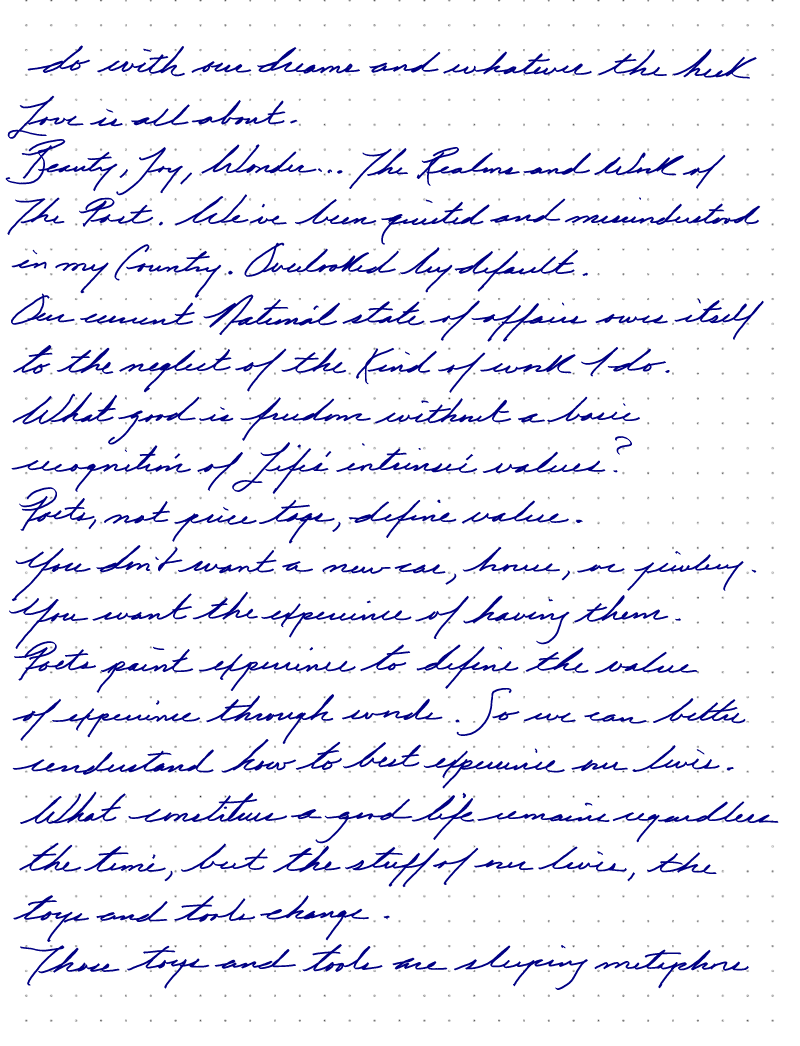 do with our dreams and whatever the heck
Love is all about.
Beauty, Joy, Wonder... The Realms and Work of
The Poet. We've been quieted and misunderstood
in my Country. Overlooked by default.
Our current National state of affairs owes itself
to the neglect of the kind of work I do.
What good is freedom without a basic
recognition of Life's intrinsic values?
Poets, not price tags, define value.
You don't want a new car, house, or jewlery.
You want the experience of having them.
Poets paint experience to define the value
of experience through words. So we can better
understand how to best experience our lives.
What constitues a good life remains regardless
the time, but the stuff of our lives, the
toys and tools change.
Those toys and tools are sleeping metaphors